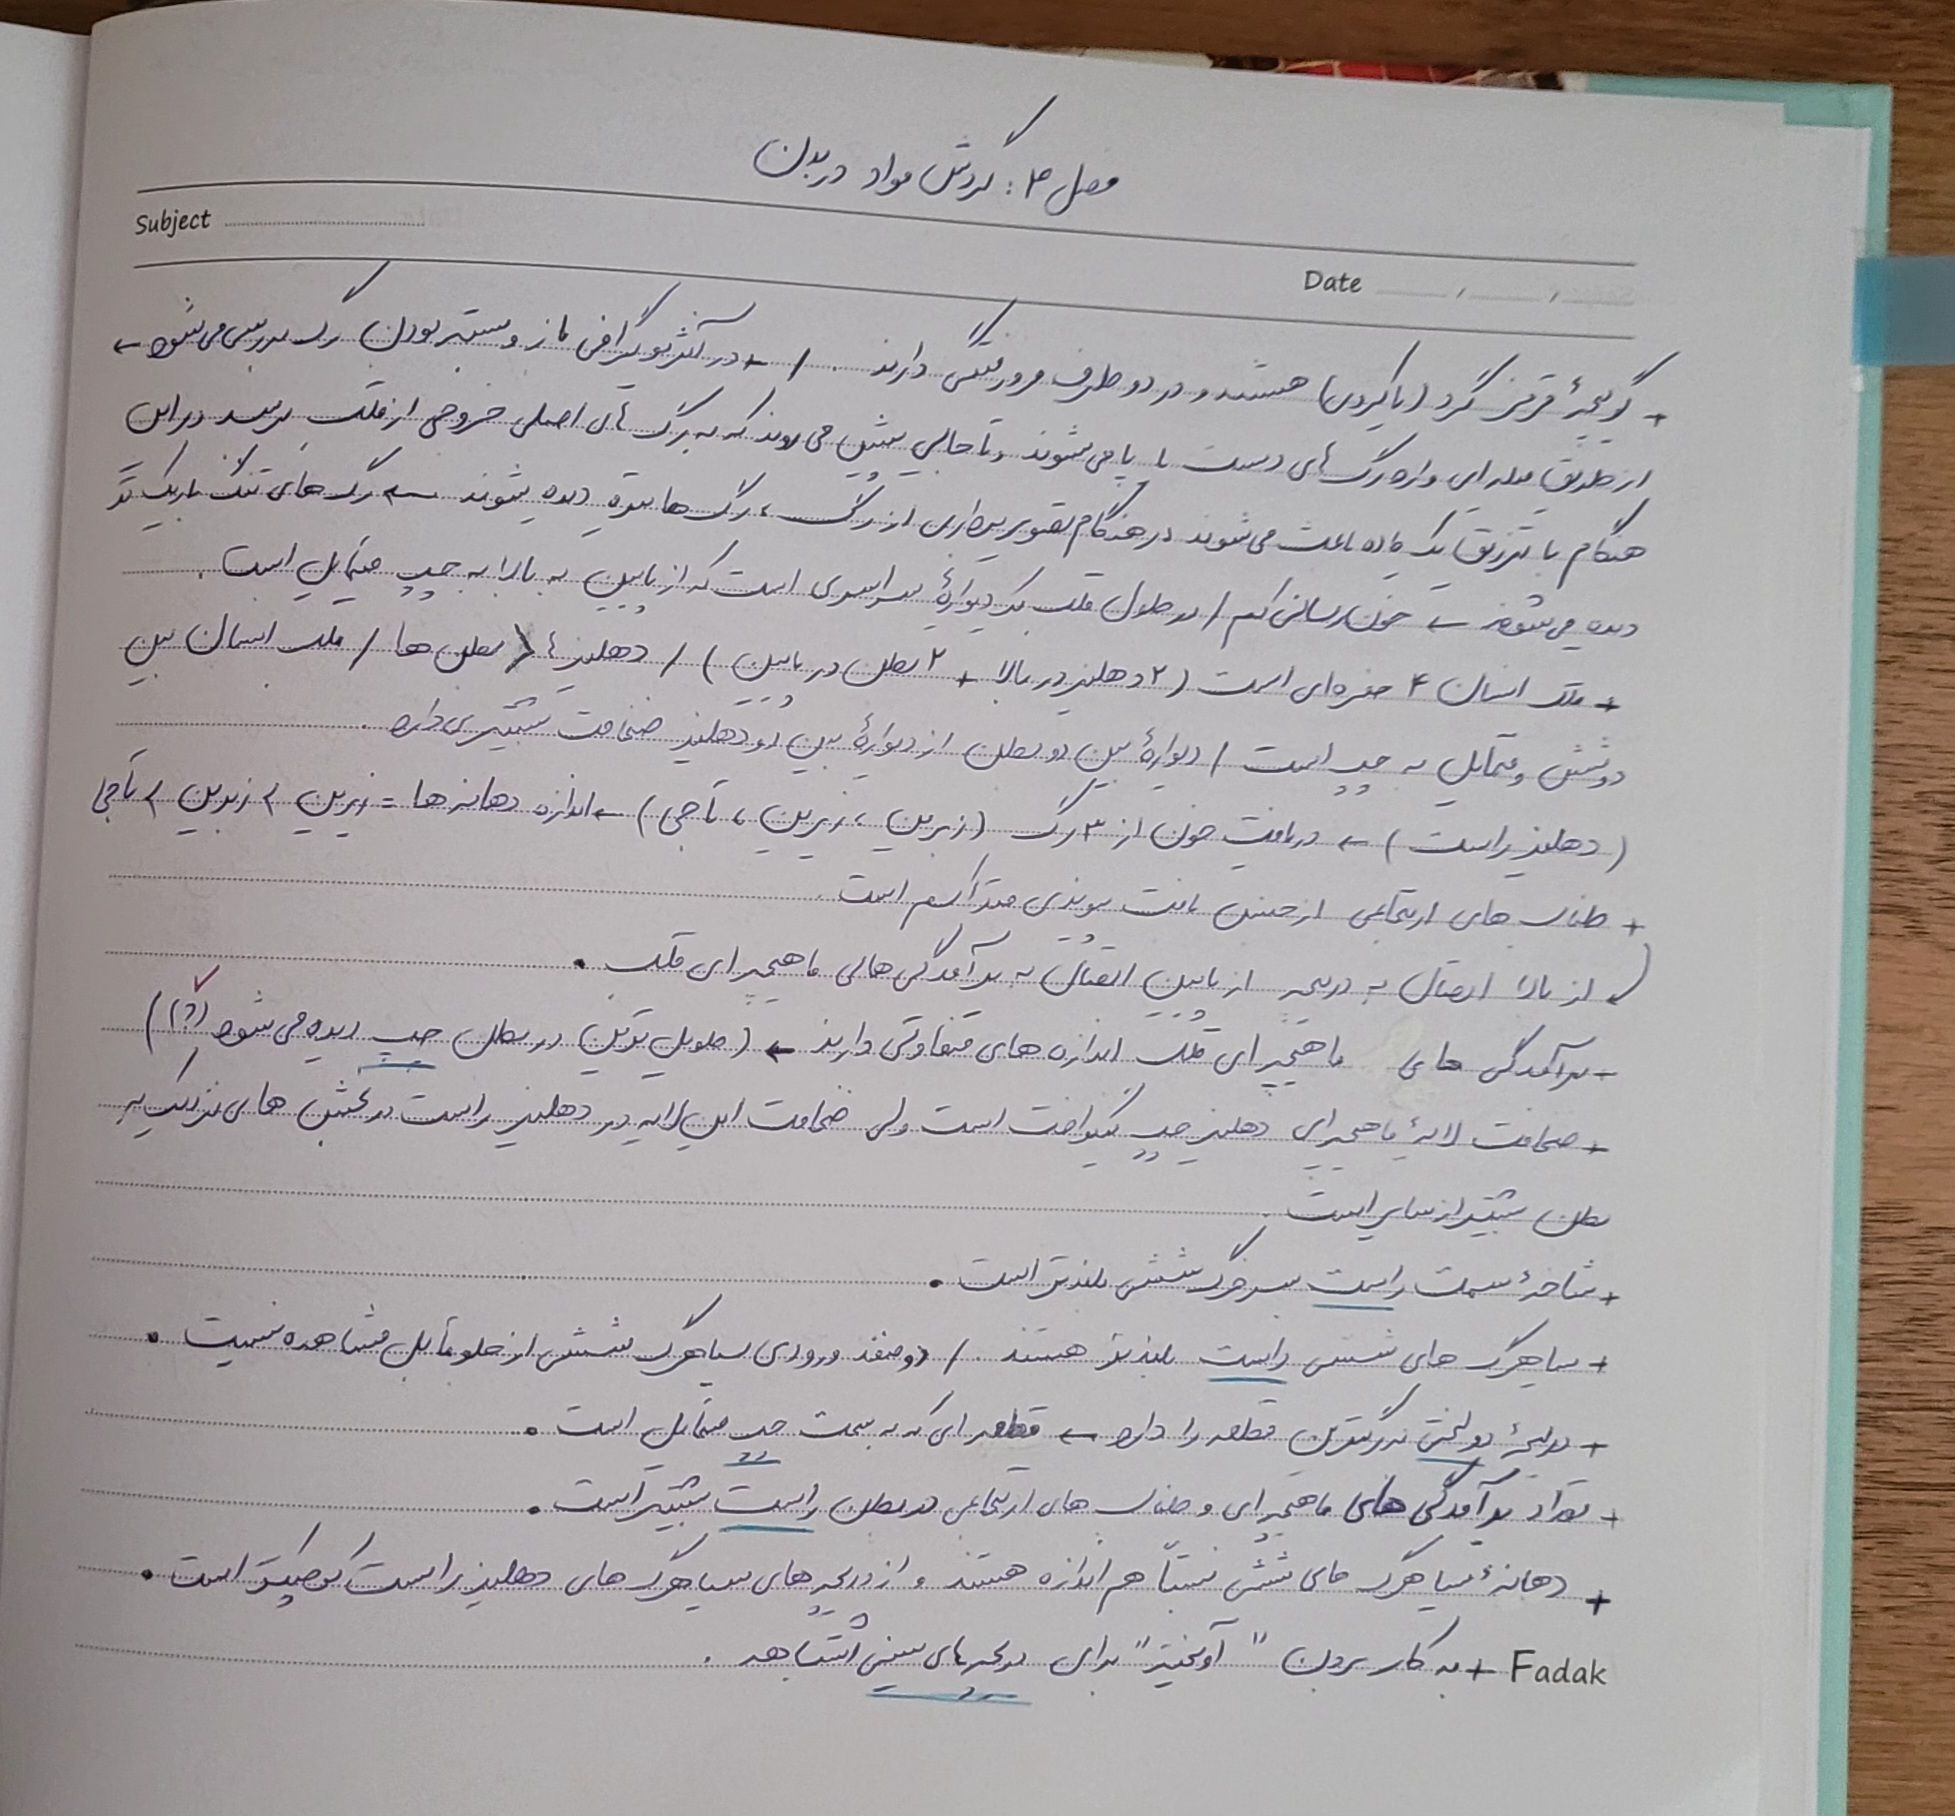 فصل ۴: گردش مواد در بدن
Subject
Date
+ گویچهٔ قرمز گرد (یا کروی) هستند و در دو طرف فرورفتگی دارند . / + در آنژیوگرافی باز و بسته بودن رگ بررسی می شود ←
از طریق میله ای وارد رگ های دست یا پا می شوند و تا جایی پیش می روند که به رگ های اصلی خروجی از قلب برسد در این
هنگام با تزریق یک ماده باعث می شوند در هنگام تصویربرداری از رگ ، رگ ها بتوانند دیده شوند ← رگ های تنگ باریک تر
دیده می شوند ← خون رسانی کم / در طول قلب یک دیوارهٔ سراسری است که از پایین به بالا به چپ متمایل است .
+ قلب انسان ۴ حفره‌ای است (۲ دهلیز در بالا + ۲ بطن در پایین) / دهلیز ها < بطن ها / قلب انسان بین
دو شش و متمایل به چپ است / دیوارهٔ بین دو بطن از دیوارهٔ بین دو دهلیز ضخامت بیشتری دارد .
(دهلیز راست) ← دریافت خون از ۳ رگ (زبرین ، زیرین ، تاجی) ← اندازه دهانه ها = زیرین > زبرین > تاجی
+ طناب های ارتجاعی از جنس بافت پیوندی متراکم است .
از بالا اتصال به دریچه از پایین اتصال به برآمدگی های ماهیچه ای قلب .
- برآمدگی های ماهیچه ای قلب اندازه های متفاوتی دارند ← (طویل ترین در بطن چپ دیده می شود (؟))
+ ضخامت لایهٔ ماهیچه ای دهلیز چپ یکنواخت است ولی ضخامت این لایه در دهلیز راست در بخش های نزدیک به
بطن بیشتر از سایر است .
+ شاخهٔ سمت راست سرخرگ ششی بلندتر است .
+ سیاهرگ های ششی راست بلندتر هستند . / دو منفذ ورودی سیاهرگ ششی از جلو قابل مشاهده نیست .
+ دریچهٔ دولختی بزرگترین قطعه را دارد ← قطعه ای که به سمت چپ متمایل است .
+ تعداد برآمدگی های ماهیچه ای و طناب های ارتجاعی در بطن راست بیشتر است .
+ دهانهٔ سیاهرگ های ششی نسبتاً هم اندازه هستند و از دریچه های سیاهرگ های دهلیز راست کوچکتر است .
Fadak + به کار بردن "آویخته" برای دریچه‌های سینی اشتباهه .